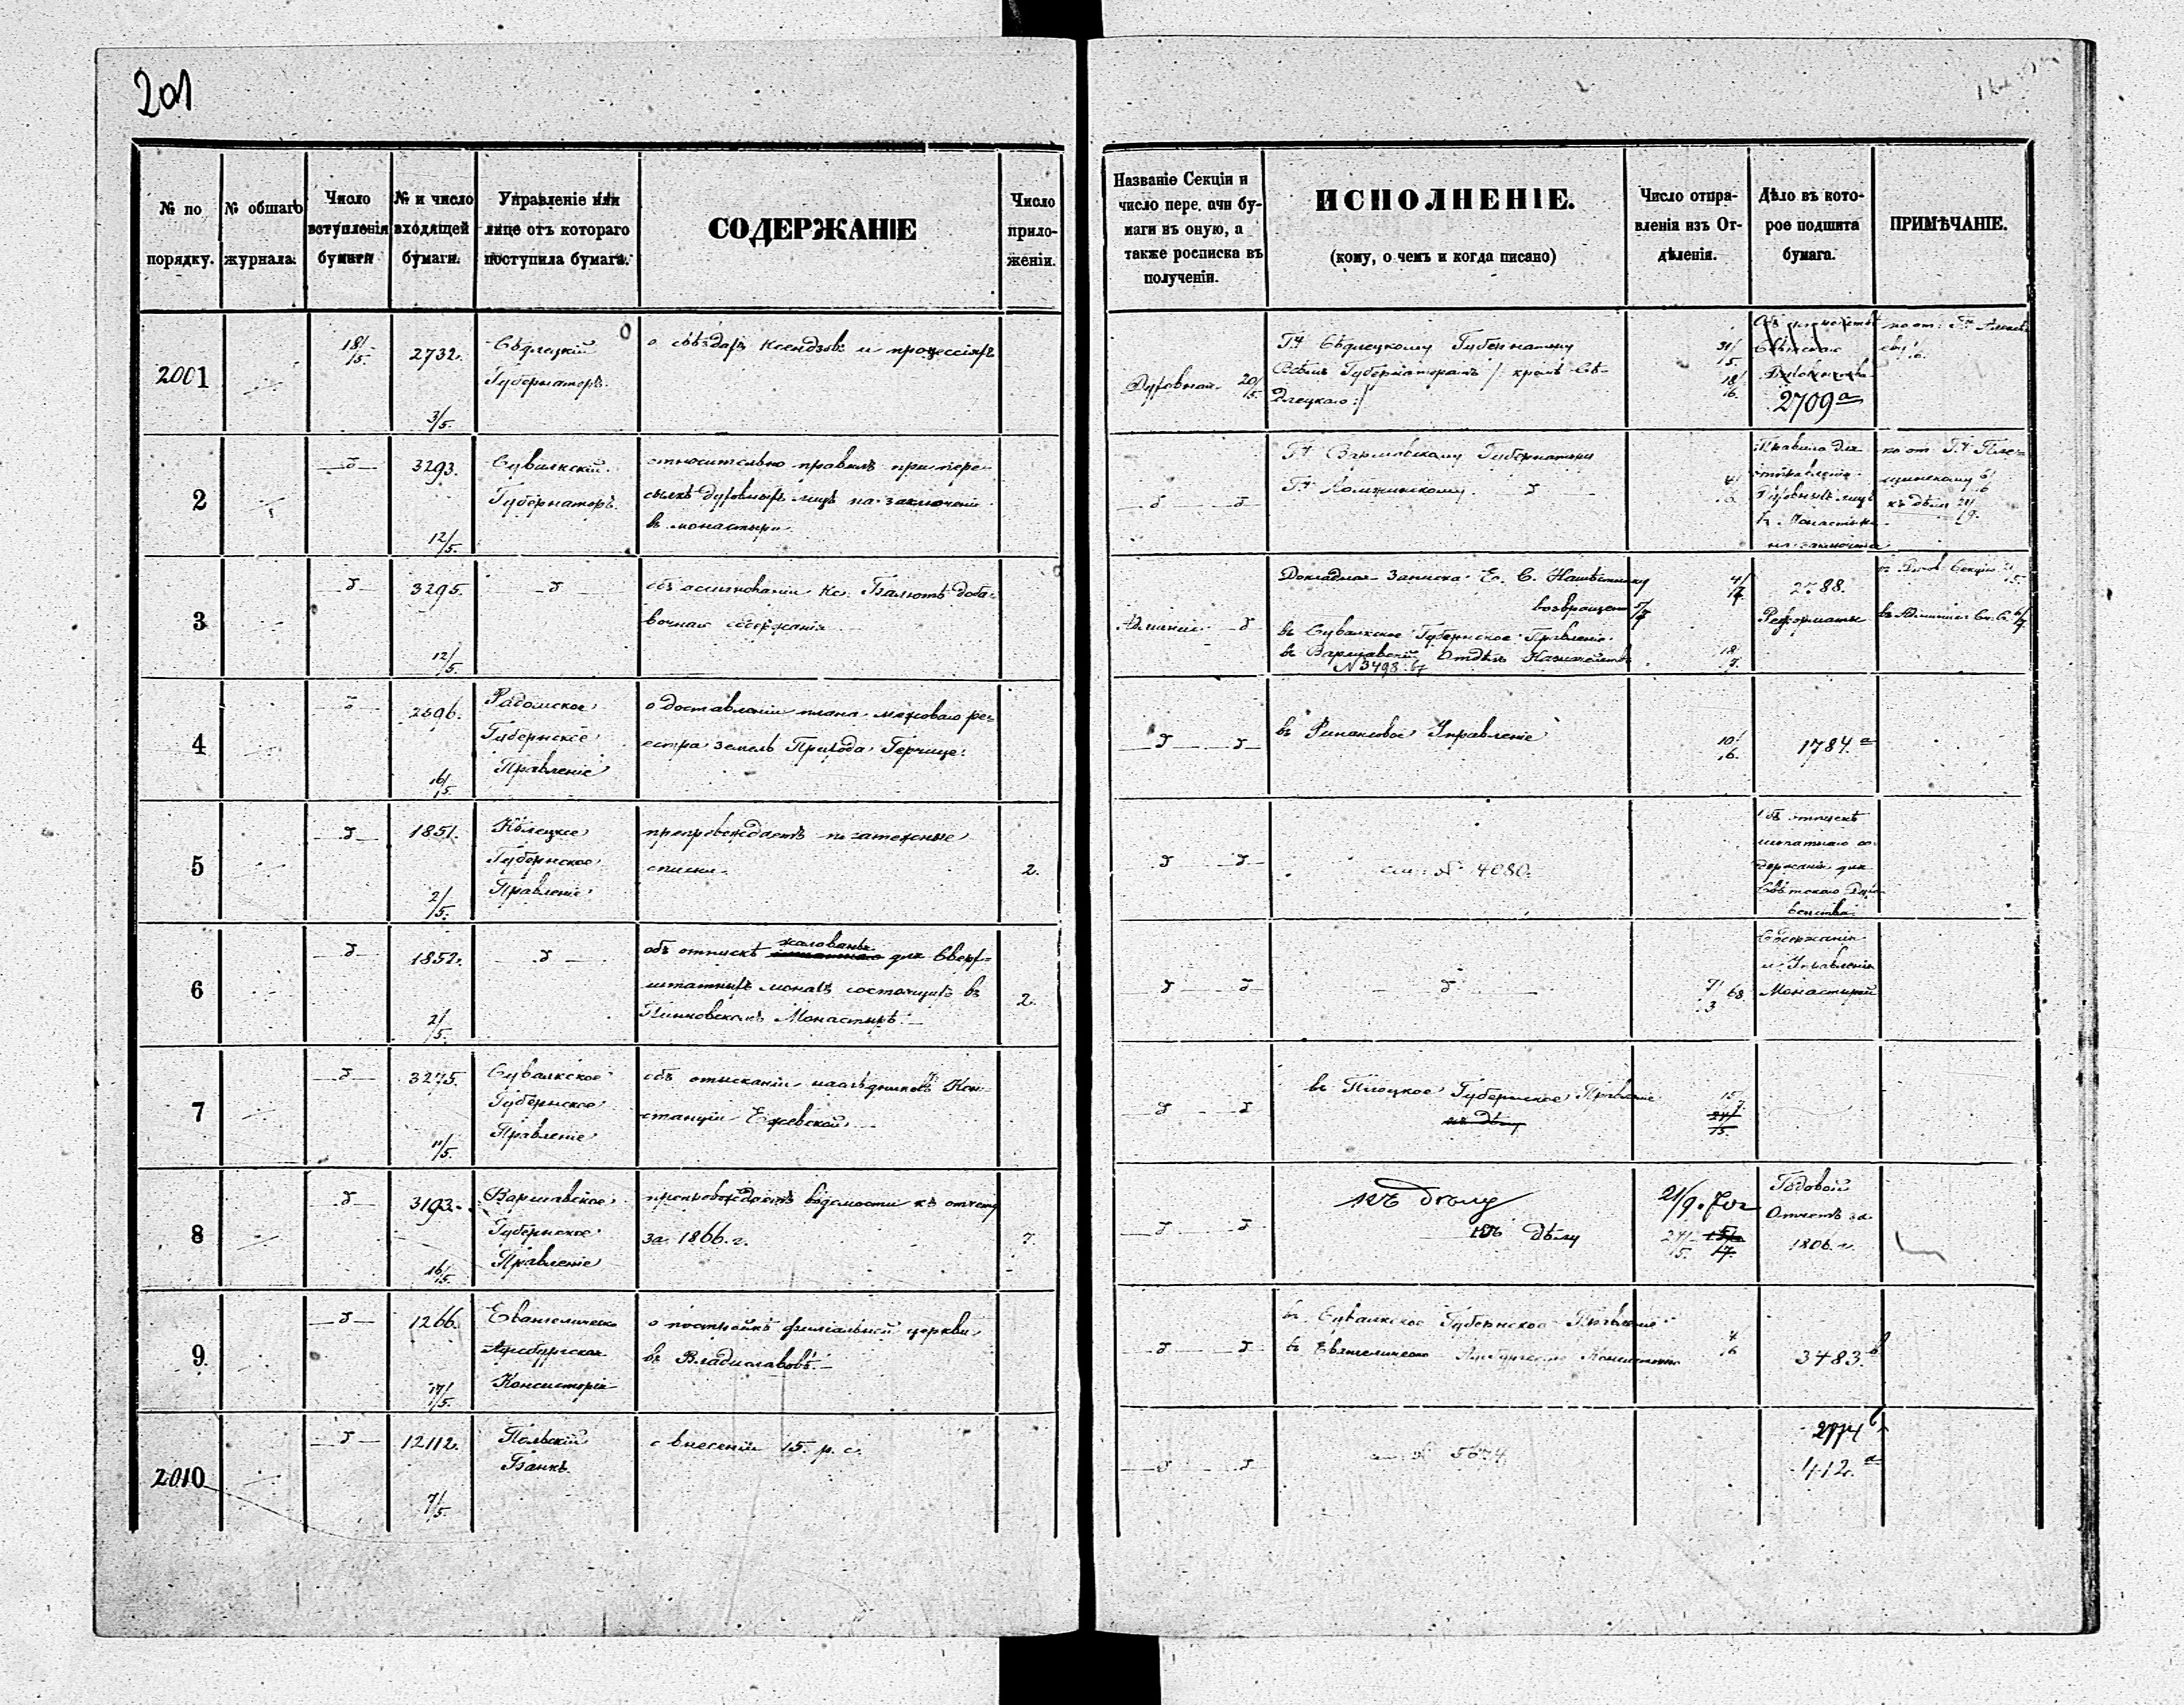 201
№ по порядку.
№ общаго журнала.
Число вступленія бумаги
№ и число входящей бумаги.
Управленіе или лице отъ котораго поступила бумага.
СОДЕРЖАНІЕ
Число приложеніи.
Названіе Секціи и число пере. ачи бумаги въ оную, а также росписка въ полученіи.
ИСПОЛНЕНІЕ.
(кому, о чемъ и когда писано)
Число отправленія изъ Отдѣленія.
Дѣло въ которое подшита бумага.
ПРИМѢЧАНІЕ.
2001
18/5.
2732.
3/5.
Сѣдлецкій
Губернаторъ.
о съѣздахъ Ксендзовъ и процессіяхъ
Духовная 20/5.
Гну Сѣдлецкому Губернатору
Всѣмъ Губернаторамъ /: кромѣ Сѣ-
длецкаго :/
31/5.
18/6.
2709 а
2
3293.
12/5.
Сувалкскій
Губернаторъ.
относительно правилъ при пере-
сылкѣ духовныхъ лицъ на заключеніе
въ монастыри
Гну Варшавскому Губернатору
Гну Ломжинскому
Правила для
отправленія
духовныхъ лицъ
въ Монастыри
на заключеніе
къ дѣлу
3
3295.
12/5.
объ ассигнованіи Кс. Балютѣ доба-
вочнаго содержанія
Докладная Записка Ег. С. Намѣстнику
возвращена 5/7
въ Сувалкское Губернское Правленіе
въ Варшавскій Отдѣлъ Казначейства
№ 3498
4/7.
18/7.
2788.
Реформаты
4
2596.
16/5.
Радомское
Губернское
Правленіе
о доставленіи плана межеваго ре-
естра земель Прихода Герчице.
въ Финансовое Управленіе
10/6.
1784. а
5
1851.
2/5.
Кѣлецкое
Губернское
Правленіе
препровождаетъ платежные
списки.
2.
см. № 4080.
Объ отпускѣ
штатнаго со-
держанія для
Свѣтскаго Духо-
венства
6
1852.
2/5.
объ отпускѣ жалованья для Сверх-
штатныхъ монахъ состоящихъ въ
Пинковскомъ Монастырѣ.
2.
7/3 68.
Содержаніе
и Управленіе
Монастырей
7
3275.
11/5.
Сувалкское
Губернское
Правленіе
объ отысканіи наслѣдниковъ Кон-
станціи Ежевской.
въ Плоцкое Губернское Правленіе
къ дѣлу
15/7
8
3193.
16/5.
Варшавское
Губернское
Правленіе
препровождаетъ вѣдомости къ отчету
за 1866. г.
7.
къ дѣлу
къ дѣлу
21/9.
27/5.
Годовой
Отчетъ за
1866. г.
9
1266.
17/5.
Евангелическо
Аугсбургская
Консисторія
о постройкѣ филіальной церкви
въ Владиславовѣ.
въ Сувалкское Губернское Правленіе
въ Евангелическо Аугсбургскую Консисторію
4/6
3483. b
2010
12112.
7/5.
Польскій
Банкъ.
о внесеніи 15. р. с.
см. № 5674
2774 b
412. а